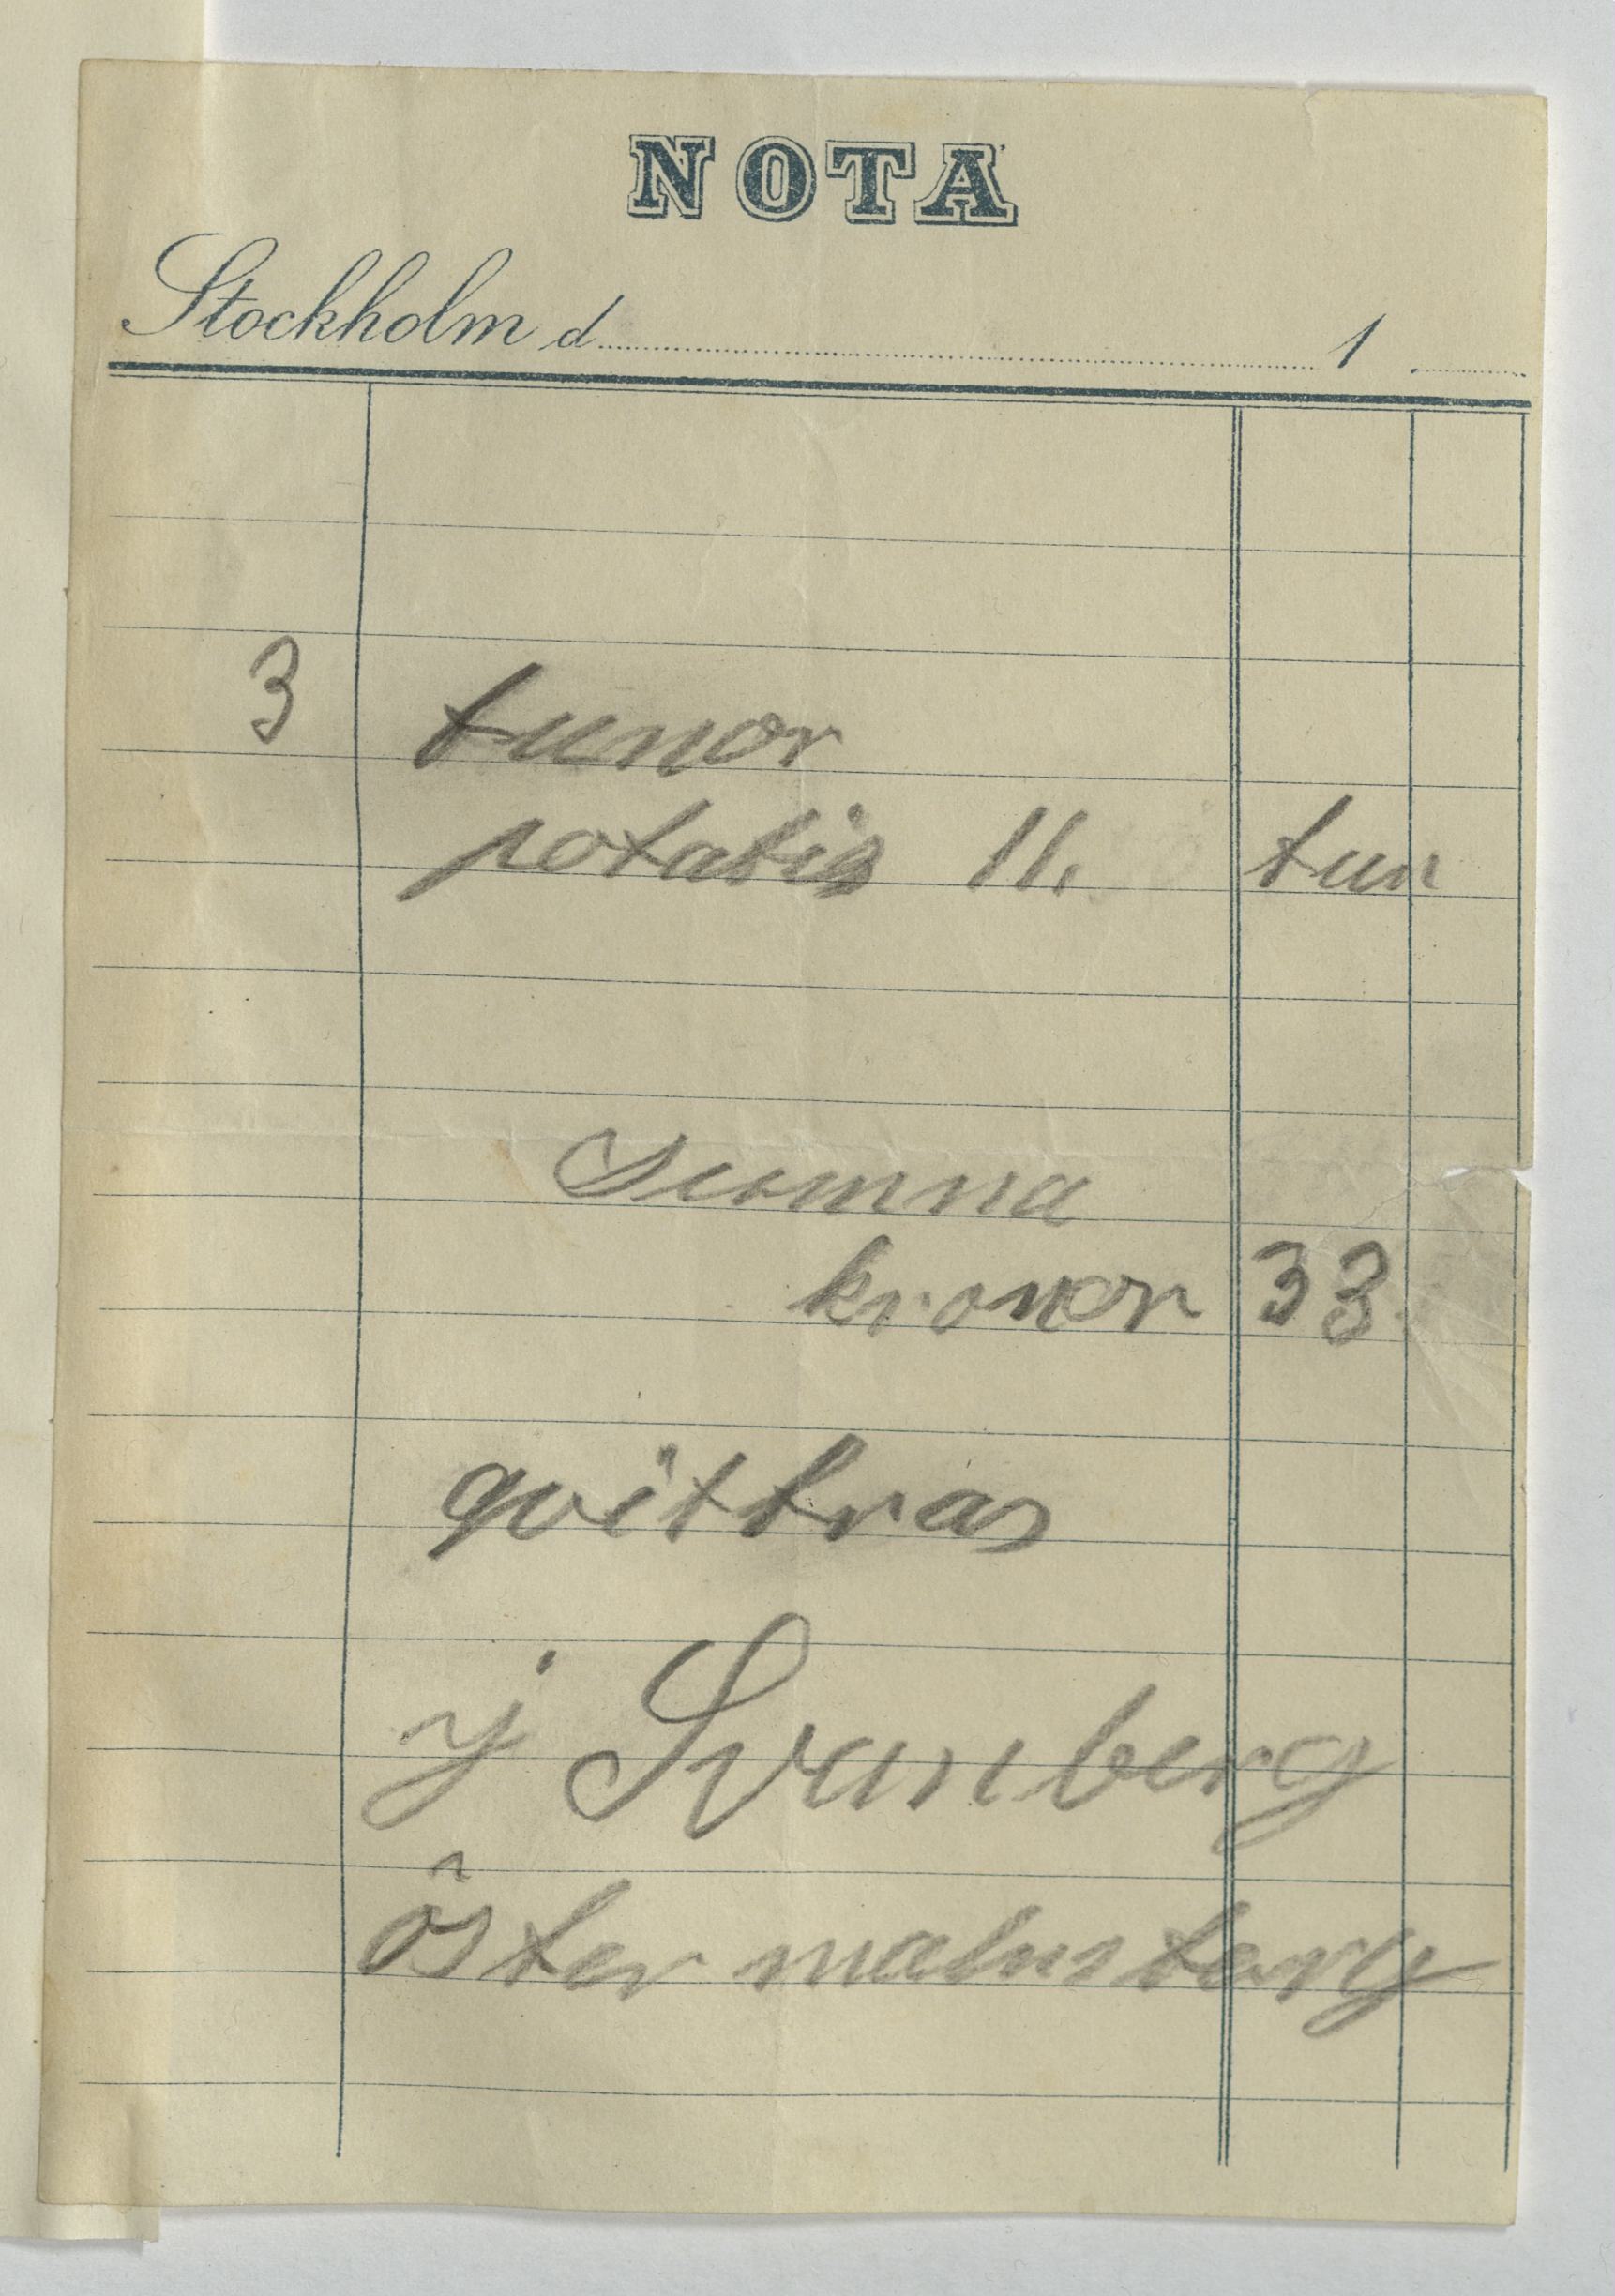 NOTA
Stockholm d. 1
3 tunor
potatis 11. tun
Summa
kronor 33
qvittras
j Svanberg
östermalmstorg